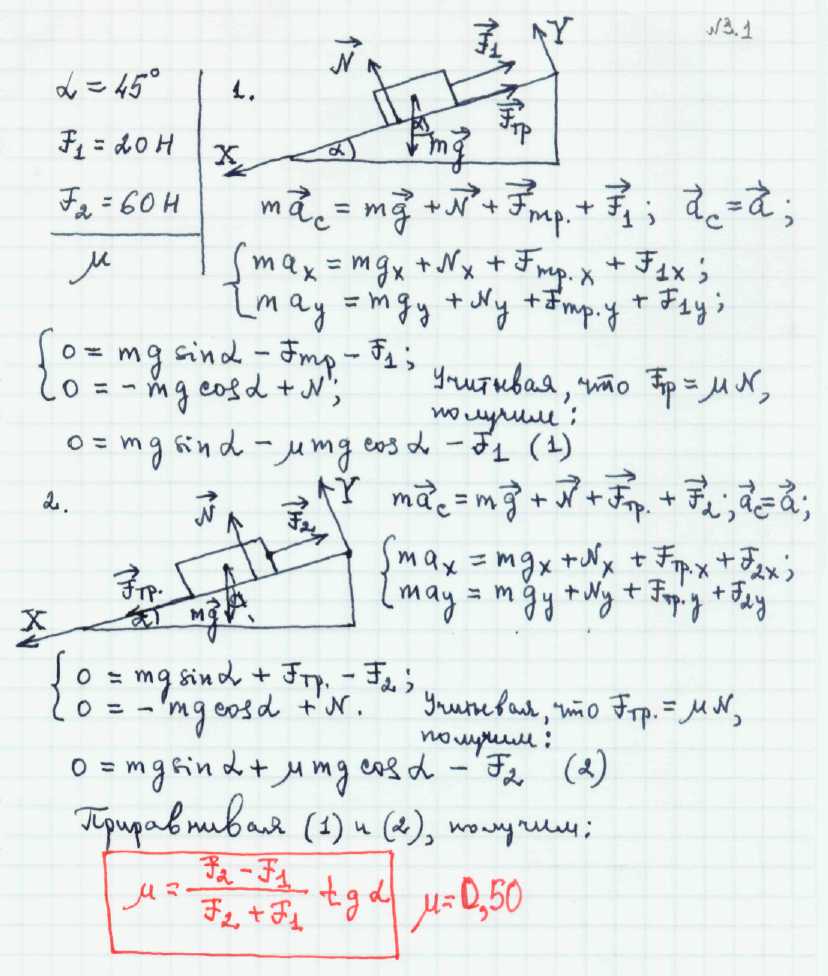 №3.1
α = 45°
F₁ = 20 Н
F₂ = 60 Н
μ
1.
N⃗ F⃗₁ Y
F⃗тр
X α α mg⃗
ma⃗c = mg⃗ + N⃗ + F⃗тр. + F⃗₁; a⃗c = a⃗;
{ maₓ = mgₓ + Nₓ + Fтр.x + F₁ₓ;
{ may = mgy + Ny + Fтр.y + F₁y;
{ 0 = mg sinα − Fтр − F₁;
{ 0 = − mg cosα + N; Учитывая, что Fтр = μN,
получим:
0 = mg sinα − μmg cosα − F₁ (1)
2.
N⃗ F⃗₂ Y
F⃗тр.
X α mg⃗ α
ma⃗c = mg⃗ + N⃗ + F⃗тр. + F⃗₂; a⃗c = a⃗;
{ maₓ = mgₓ + Nₓ + Fтр.x + F₂ₓ;
{ may = mgy + Ny + Fтр.y + F₂y
{ 0 = mg sinα + Fтр. − F₂;
{ 0 = − mg cosα + N. Учитывая, что Fтр. = μN,
получим:
0 = mg sinα + μmg cosα − F₂ (2)
Приравнивая (1) и (2), получим:
μ = (F₂ − F₁)/(F₂ + F₁) tgα μ = 0,50